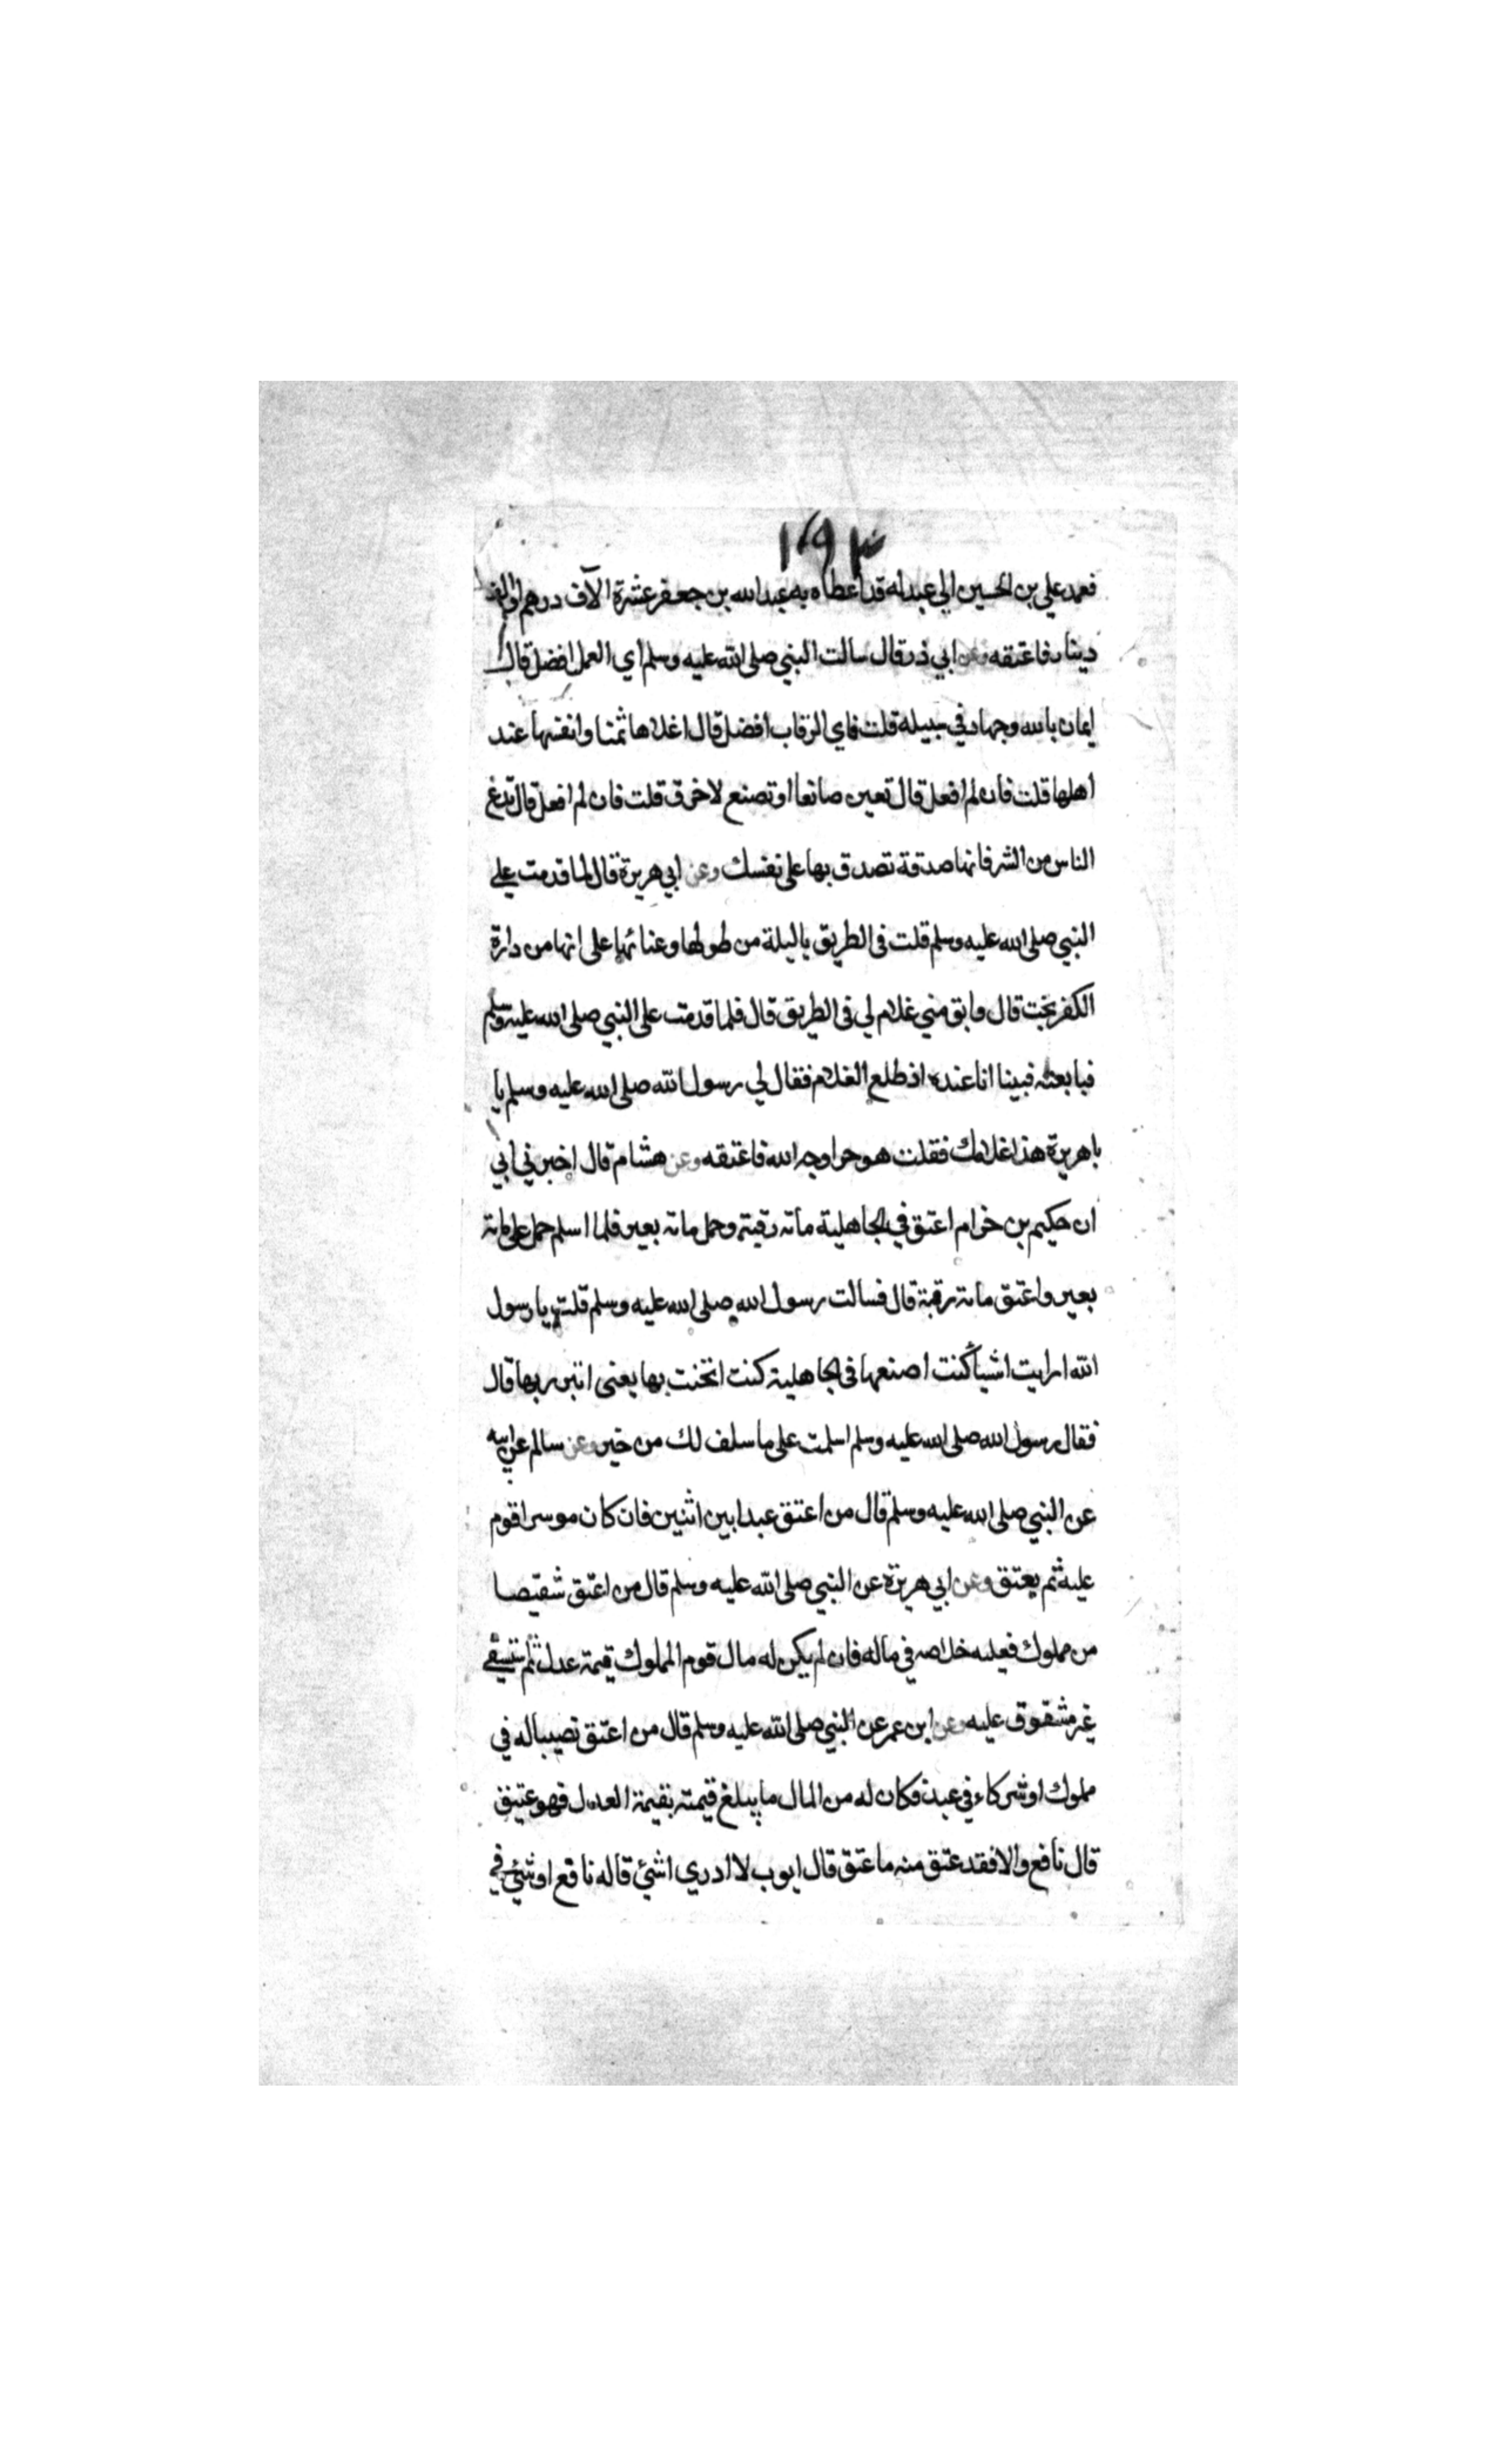 ١٩٣
فعمد علي بن الحسين الي عبد له قد اعطاه به عبد الله بن جعفر عشرة الآف درهم او الف
دينار فاعتقه وعن ابي ذر قال سالت النبي صلى الله عليه وسلم اي العمل افضل قال
ايمان بالله وجهاد في سبيله قلت فاي الرقاب افضل قال اغلاها ثمنا وانفسها عند
اهلها قلت فان لم افعل قال تعين صانعا او تصنع لاخرق قلت فان لم افعل قال تدع
الناس من الشر فانها صدقة تصدق بها على نفسك وعن ابي هريرة قال لما قدمت علي
النبي صلى الله عليه وسلم قلت في الطريق ياليلة من طولها وعنائها على انها من دارة
الكفر نجت قال وابق مني غلام لي في الطريق قال فلما قدمت على النبي صلى الله عليه وسلم
فبايعته فبينا انا عنده اذ طلع الغلام فقال لي رسول الله صلى الله عليه وسلم يا
باهريرة هذا غلامك فقلت هو حر لوجه الله فاعتقه وعن هشام قال اخبرني ابي
ان حكيم بن خرام اعتق في الجاهلية ماته رقبته وحمل ماته بعير فلما اسلم حمل على ماته
بعير واعتق ماته رقبة قال فسالت رسول الله صلى الله عليه وسلم قلت يا رسول
الله ارايت اشيأ كنت اصنعها في الجاهلية كنت اتحنت بها يعنى اتبرر بها قال
فقال رسول الله صلى الله عليه وسلم اسلمت على ما سلف لك من خير وعن سالم عن ابيه
عن النبي صلى الله عليه وسلم قال من اعتق عبدا بين اثنين فان كان موسرا قوم
عليه ثم يعتق وعن ابي هريرة عن النبي صلى الله عليه وسلم قال من اعتق شقيصا
من مملوك فعليه خلاصه في ماله فان لم يكن له مال قوم المملوك قيمة عدل ثم
غير مشقوق عليه وعن ابن عمر عن النبي صلى الله عليه وسلم قال من اعتق نصيبا له في
مملوك او شركاء في عبد فكان له من المال ما يبلغ قيمته بقيمة العدل فهو عتيق
قال نافع والا فقد عتق منه ما عتق قال ايوب لا ادري اشئ قاله نافع او شئ في